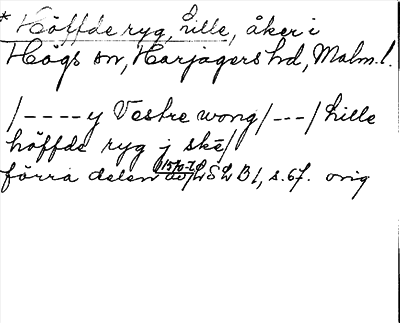 * Höffde ryg, Lille, åker i
Högs sn, Harjagers hd, Malm. l.
/----y Vestre wong/---/ Lille
höffde ryg j ské/
förra delen av 1570-t. LSLB 1, s. 67. orig